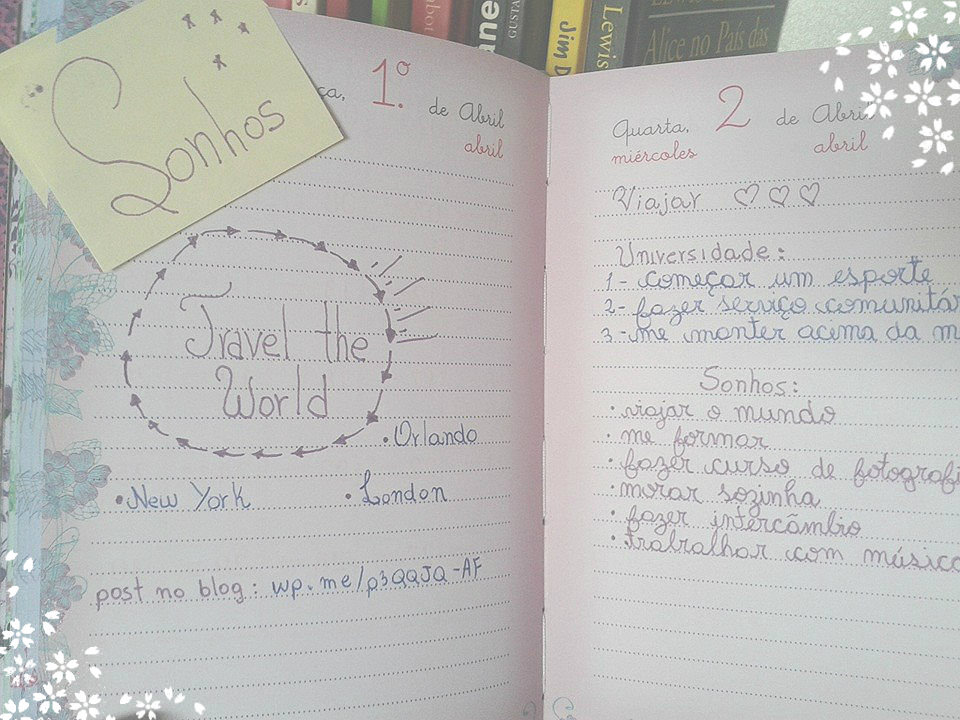 Sonhos
1.º de Abril
abril
Travel the
World
• Orlando
• New York
• London
post no blog: wp.me/p3QQJQ-AF
Quarta, 2 de Abril
miércoles abril
Viajar ♡♡♡
Universidade:
1- começar um esporte
2- fazer serviço comunitár
3- me manter acima da m
Sonhos:
• viajar o mundo
• me formar
• fazer curso de fotografi
• morar sozinha
• fazer intercâmbio
• trabralhar com músic
Jim D
Lewis
Alice no País das